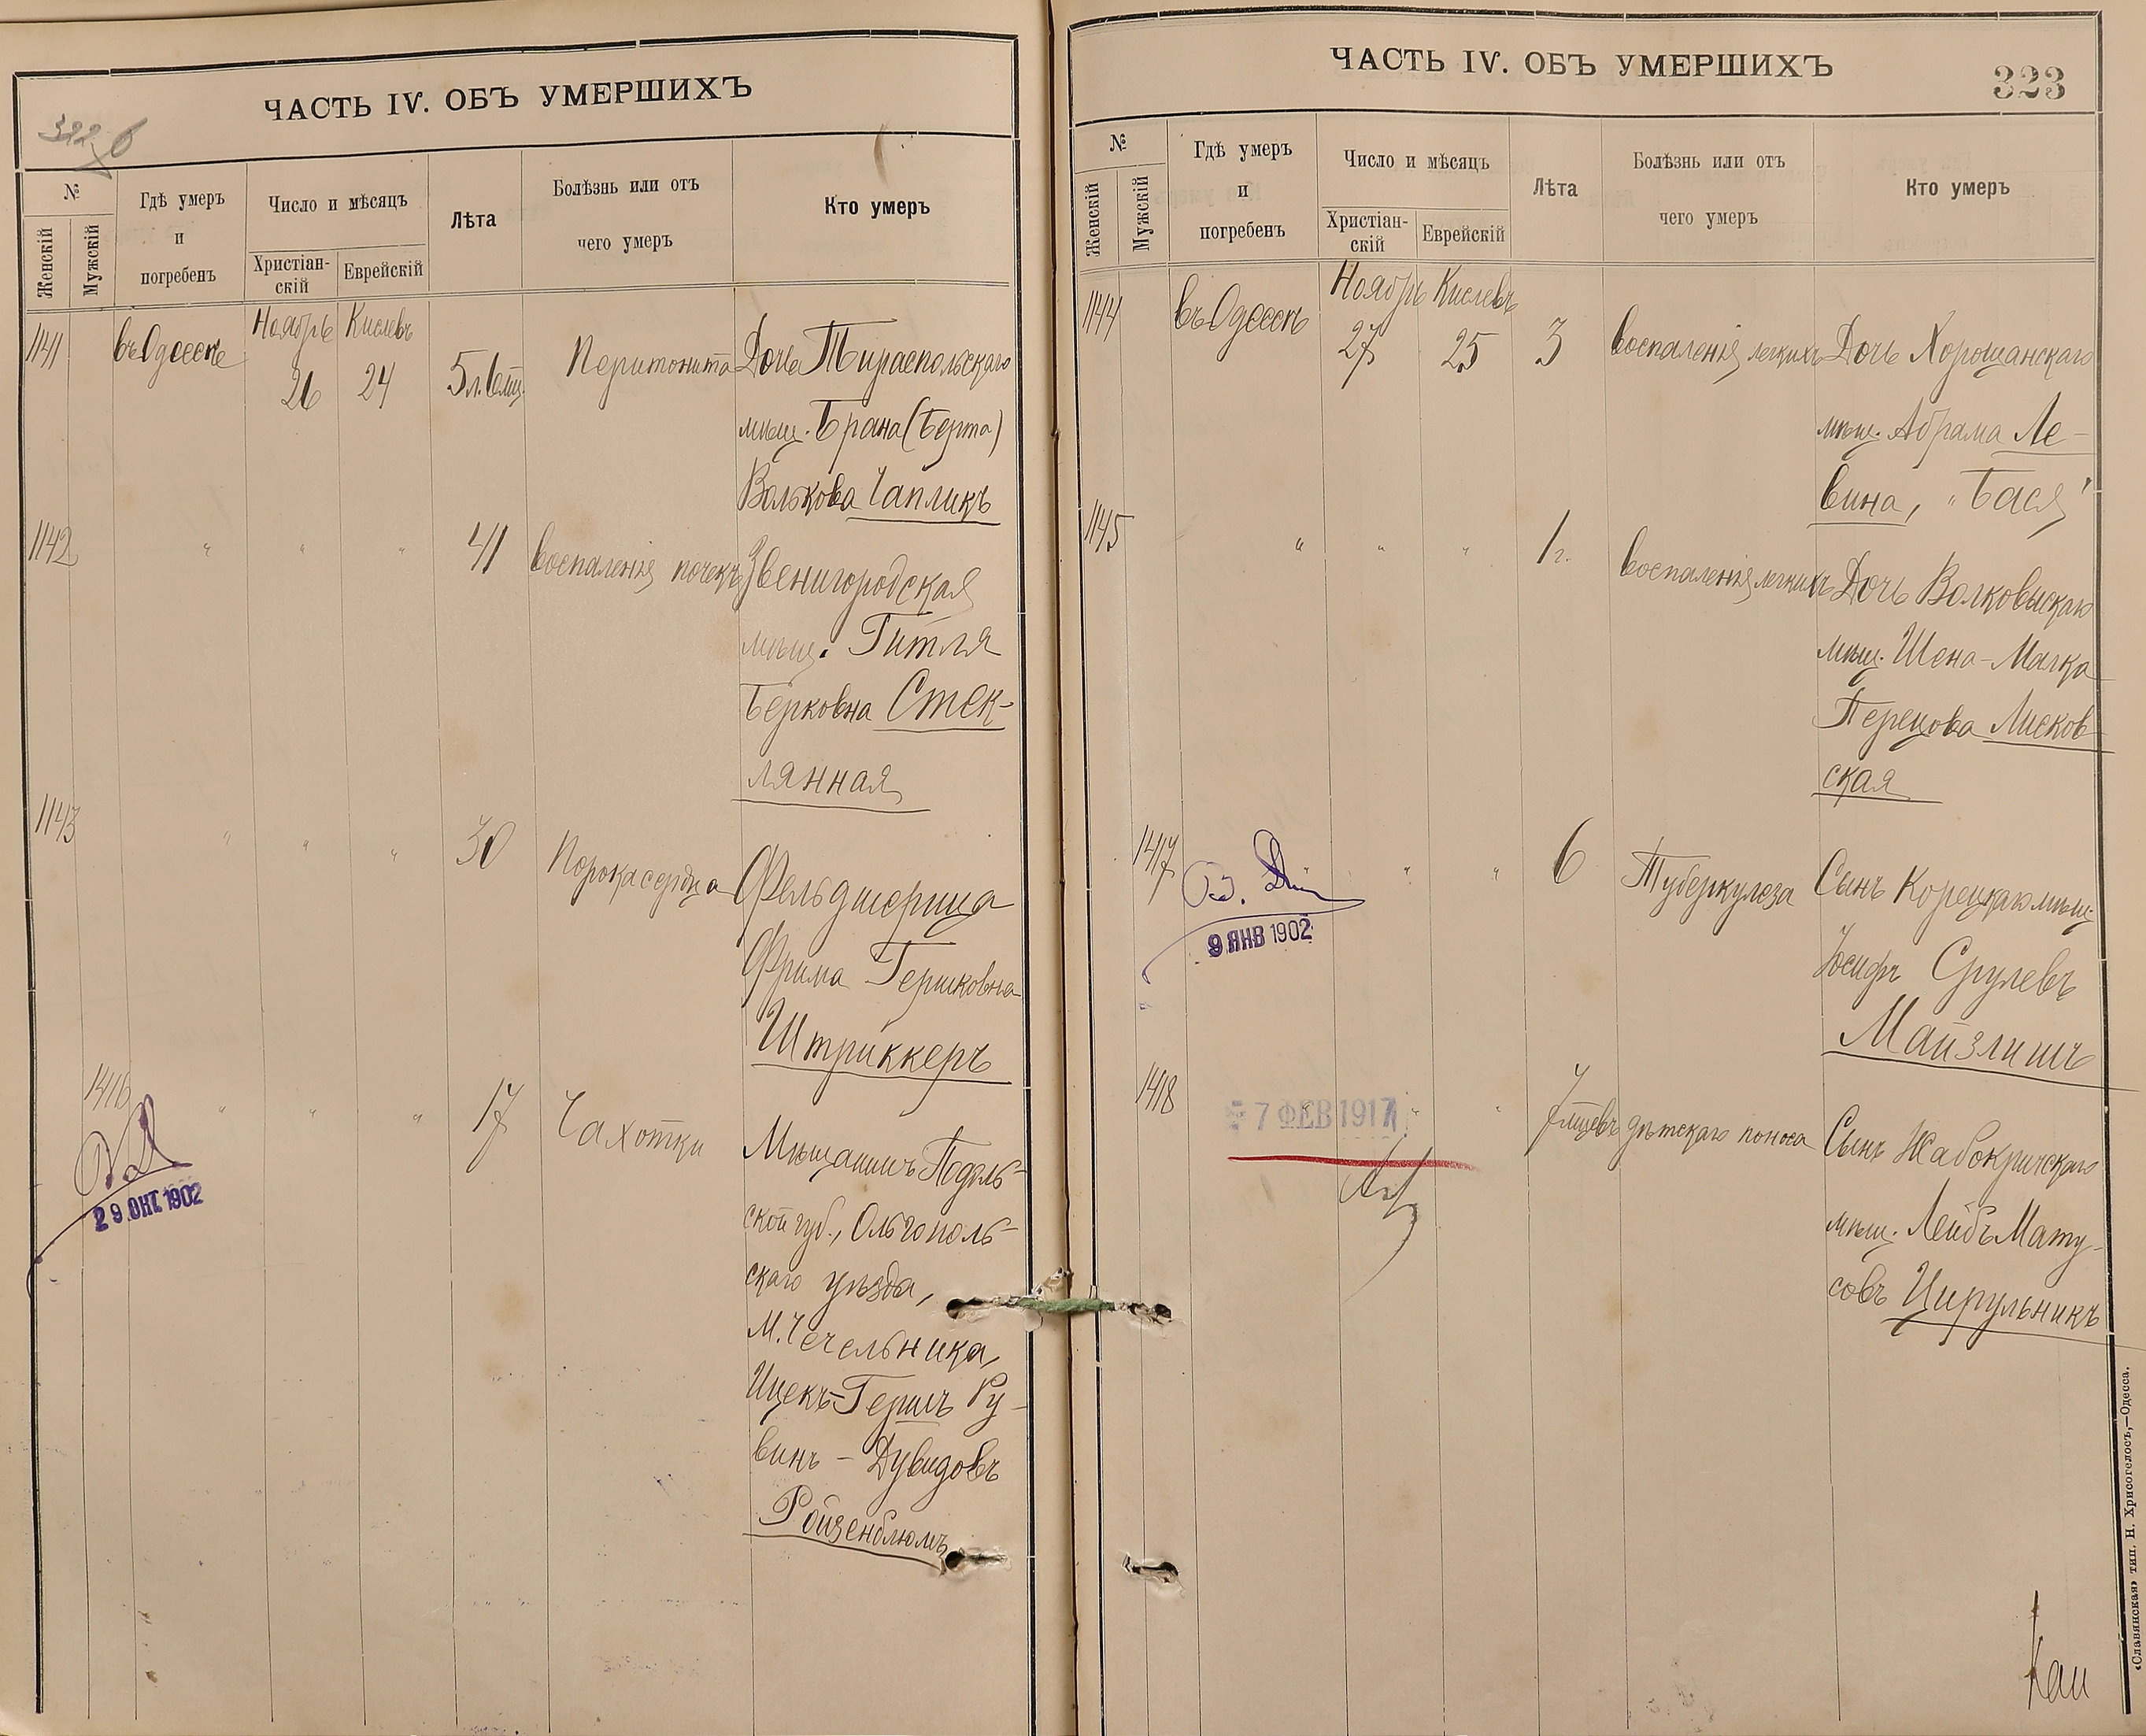 ЧАСТЬ IV. ОБЪ УМЕРШИХЪ
№
Женскій
Мужскій
Гдѣ умеръ
и
погребенъ
Число и мѣсяцъ
Христіан-
скій
Еврейскій
Лѣта
Болѣзнь или отъ
чего умеръ
Кто умеръ
1141
въ Одессѣ
Ноябрь
26
Кислевъ
24
5 л.
Перитонита
Дочь Тираспольскаго
мѣщ. Брана (Берта)
Волькова Чапликъ
1142
" " "
41
воспаленія почекъ
Звенигородская
мѣщ. Гитля
Берковна Стек-
лянная
1143
" " "
30
Порока сердца
Фельдшерица
Фрима Гершковна
Штриккеръ
1416
" " "
17
Чахотки
Мѣщанинъ Подоль-
ской губ., Ольгополь-
скаго уѣзда,
м. Чечельника,
Ицекъ-Гершъ Ру-
винъ - Дувидовъ
Ройзенблюмъ
29 ОКТ 1902
ЧАСТЬ IV. ОБЪ УМЕРШИХЪ
323
№
Женскій
Мужскій
Гдѣ умеръ
и
погребенъ
Число и мѣсяцъ
Христіан-
скій
Еврейскій
Лѣта
Болѣзнь или отъ
чего умеръ
Кто умеръ
1144
въ Одессѣ
Ноябрь
27
Кислевъ
25
3
воспаленія легкихъ
Дочь Хорощанскаго
мѣщ. Абрама Ле-
вина, "Бася"
1145
" " "
1 г.
воспаленія легкихъ
Дочь Волковыскаго
мѣщ. Шена-Малка
Перецова Лисков-
ская
1417
" " "
6
Туберкулеза
Сынъ Корецкаго мѣщ.
Іосифъ Срулевъ
Майзлишъ
9 ЯНВ 1902
1418
" " "
7 мцевъ
дѣтскаго поноса
Сынъ Жабокричскаго
мѣщ. Лейбъ Мату-
совъ Цирульникъ
7 ФЕВ 1917
«Славянская» тип. Н. Хрисогелосъ,—Одесса.